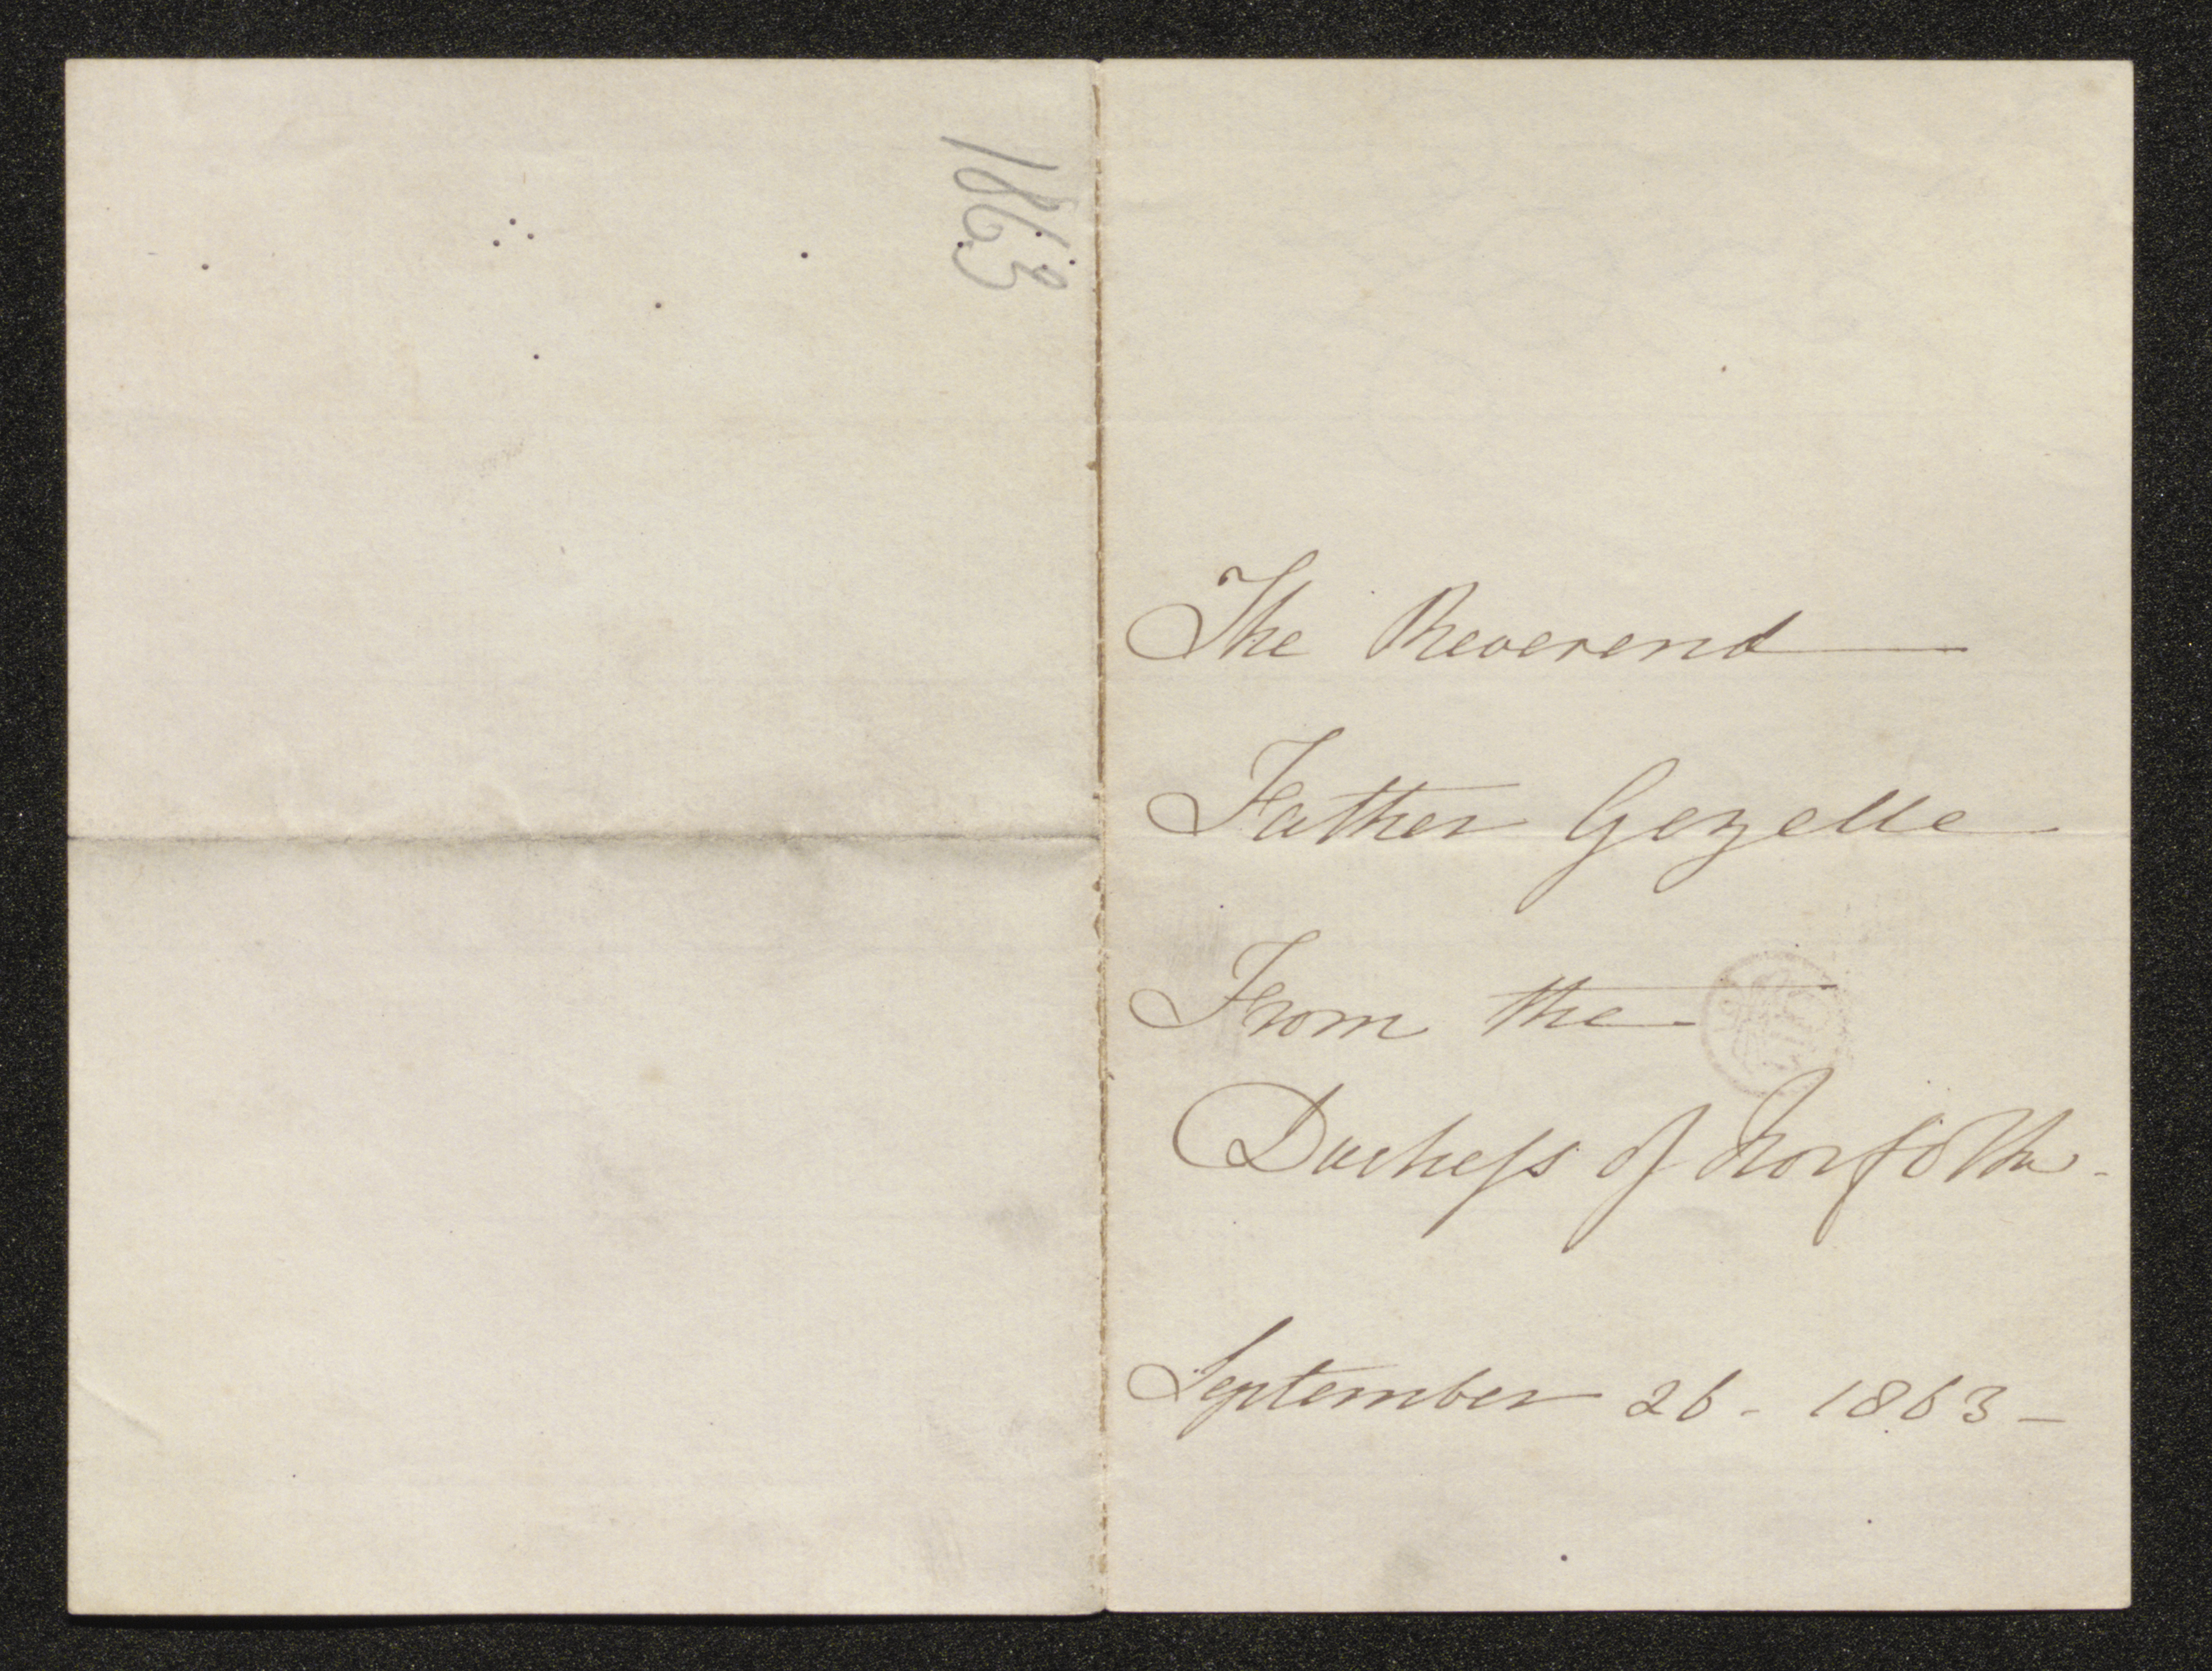 1863
The Reverend
Father Gezelle
From the
Duchess of Norfolk.
September 26 - 1863 -